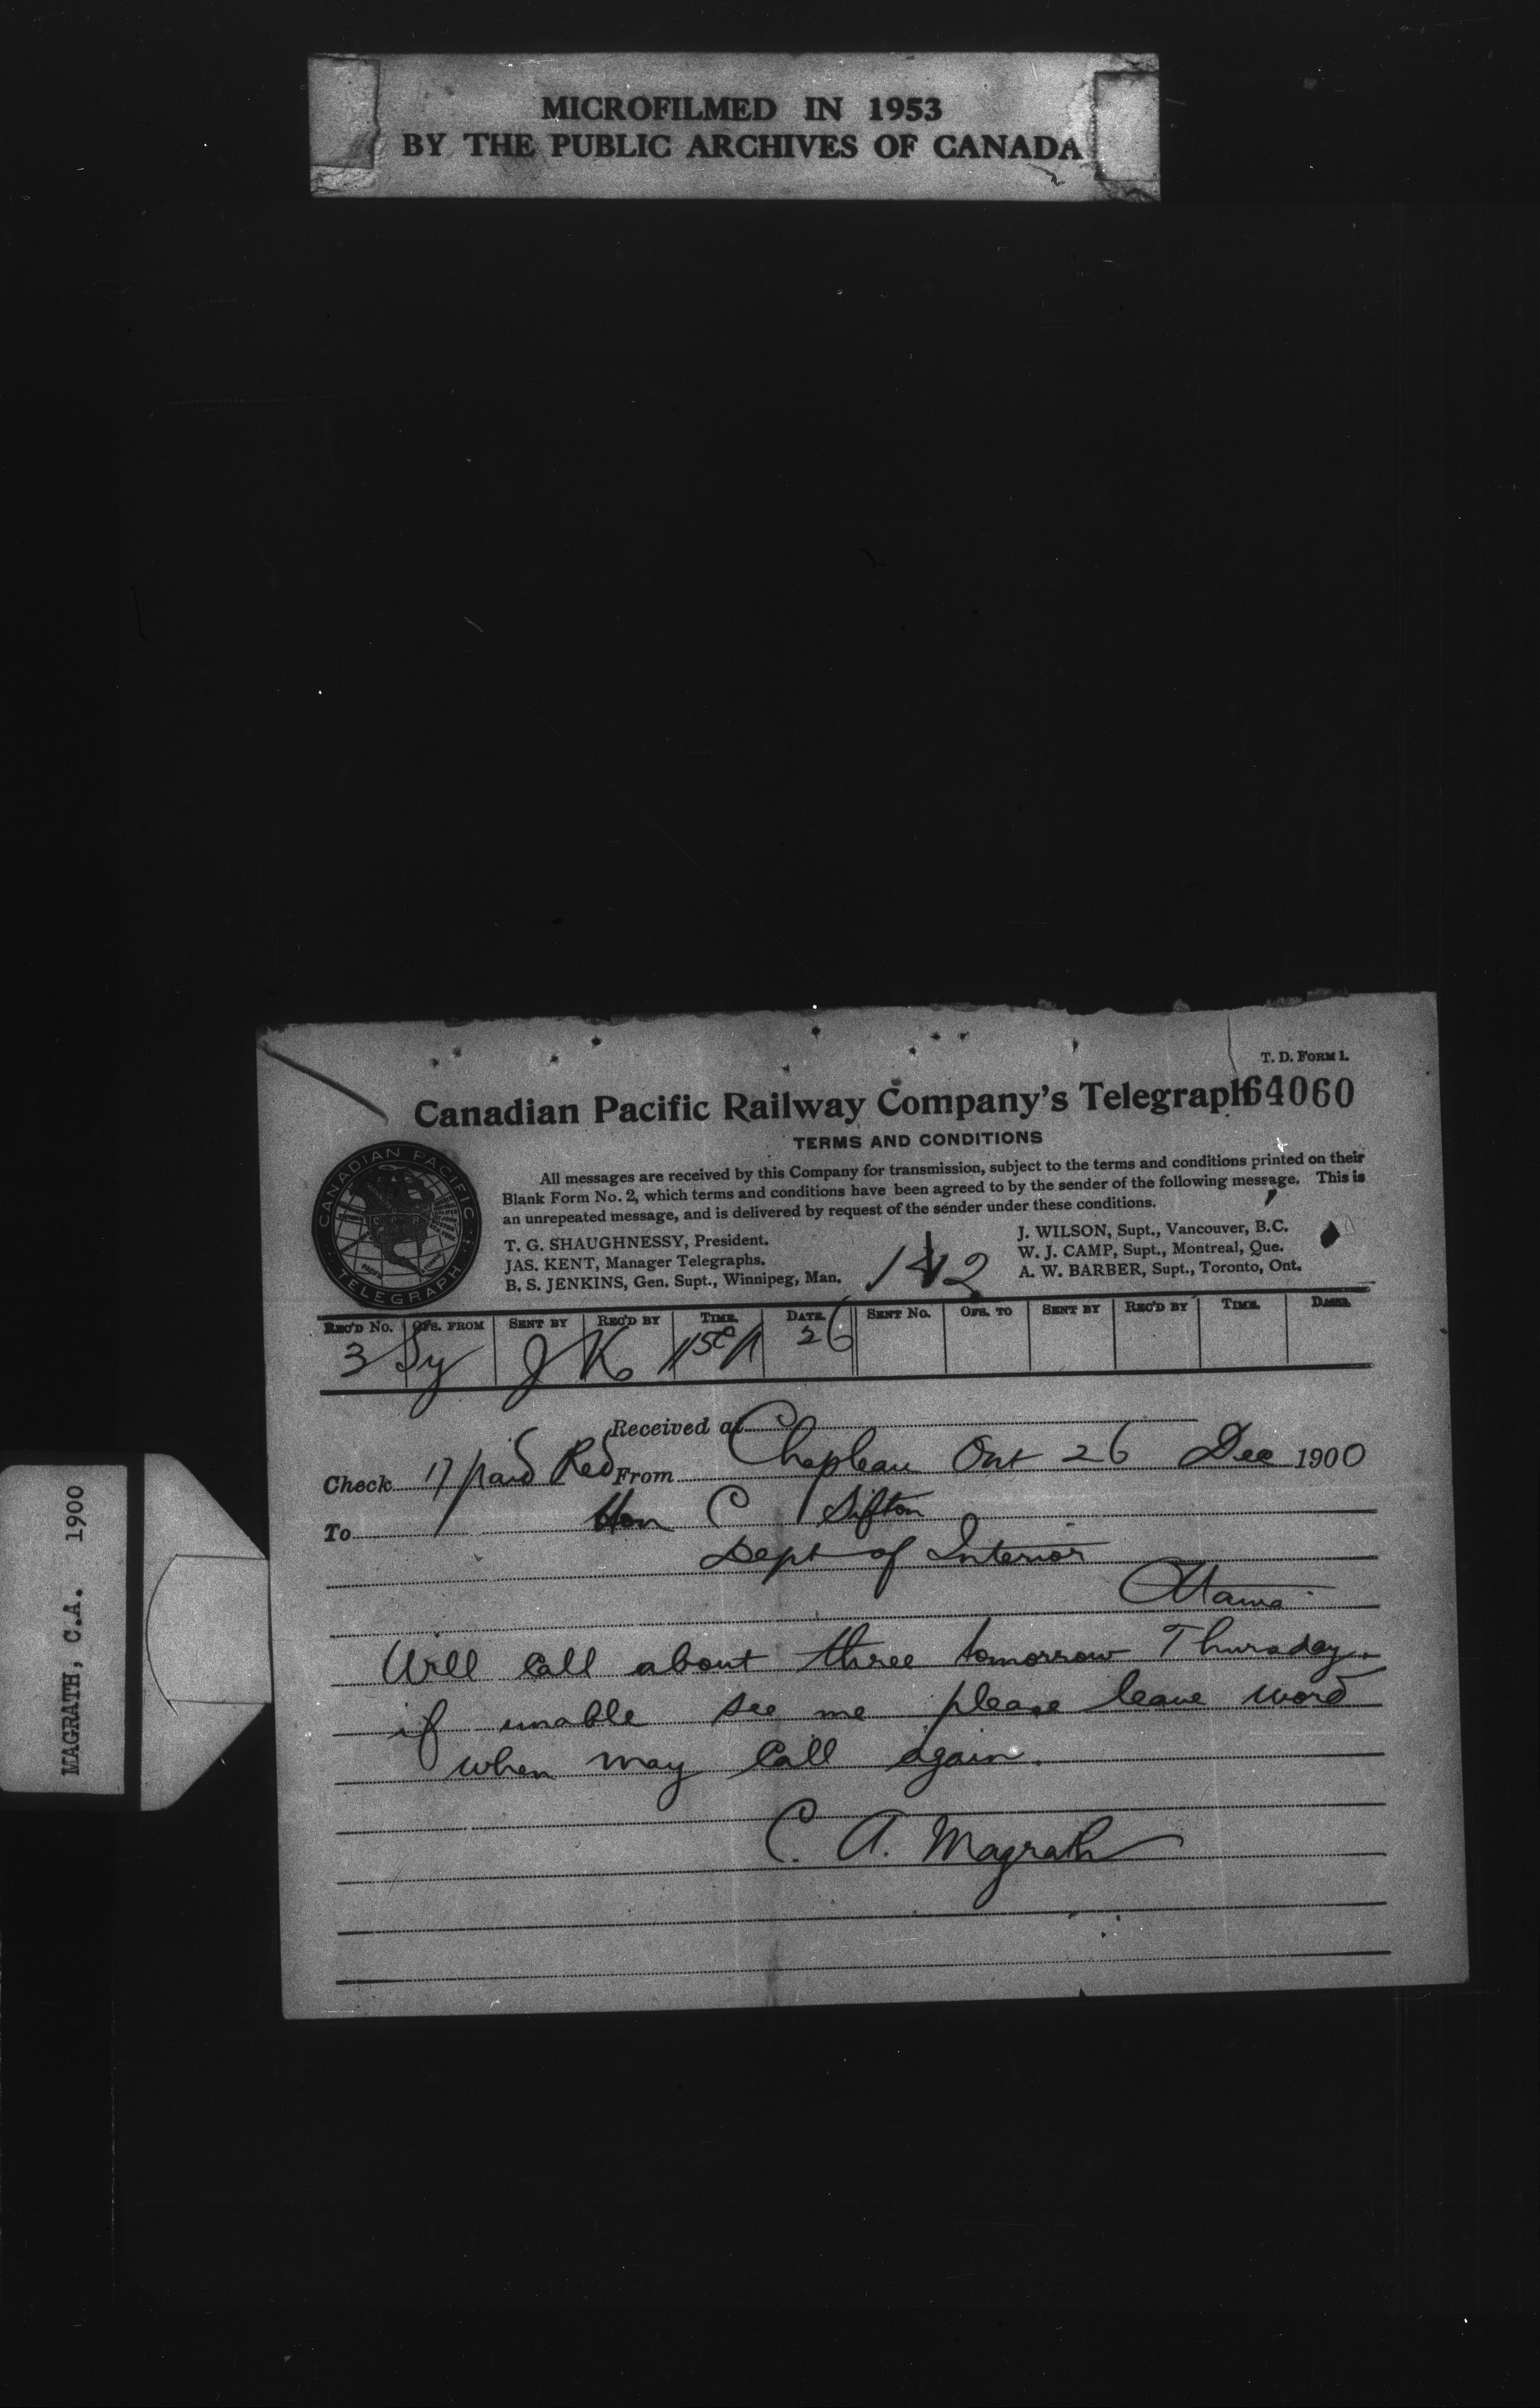 MICROFILMED IN 1953
BY THE PUBLIC ARCHIVES OF CANADA
MAGRATH, C.A. 1900
T. D. FORM 1.
Canadian Pacific Railway Company's Telegraph
64060
TERMS AND CONDITIONS
All messages are received by this Company for transmission, subject to the terms and conditions printed on their
Blank Form No. 2, which terms and conditions have been agreed to by the sender of the following message. This is
an unrepeated message, and is delivered by request of the sender under these conditions.
T. G. SHAUGHNESSY, President.
JAS. KENT, Manager Telegraphs.
B. S. JENKINS, Gen. Supt., Winnipeg, Man.
J. WILSON, Supt., Vancouver, B.C.
W. J. CAMP, Supt., Montreal, Que.
A. W. BARBER, Supt., Toronto, Ont.
CANADIAN PACIFIC
TELEGRAPH
REC'D NO. OFS. FROM SENT BY REC'D BY TIME. DATE. SENT NO. OFS. TO SENT BY REC'D BY TIME. DATE.
3 Sy J K 26
Received at
Check 17 paid Red From Chapleau Ont 26 Dec 1900
To Hon C Sifton
Dept of Interior
Ottawa
Will call about three tomorrow Thursday.
if unable see me please leave word
when may call again.
C. A. Magrath